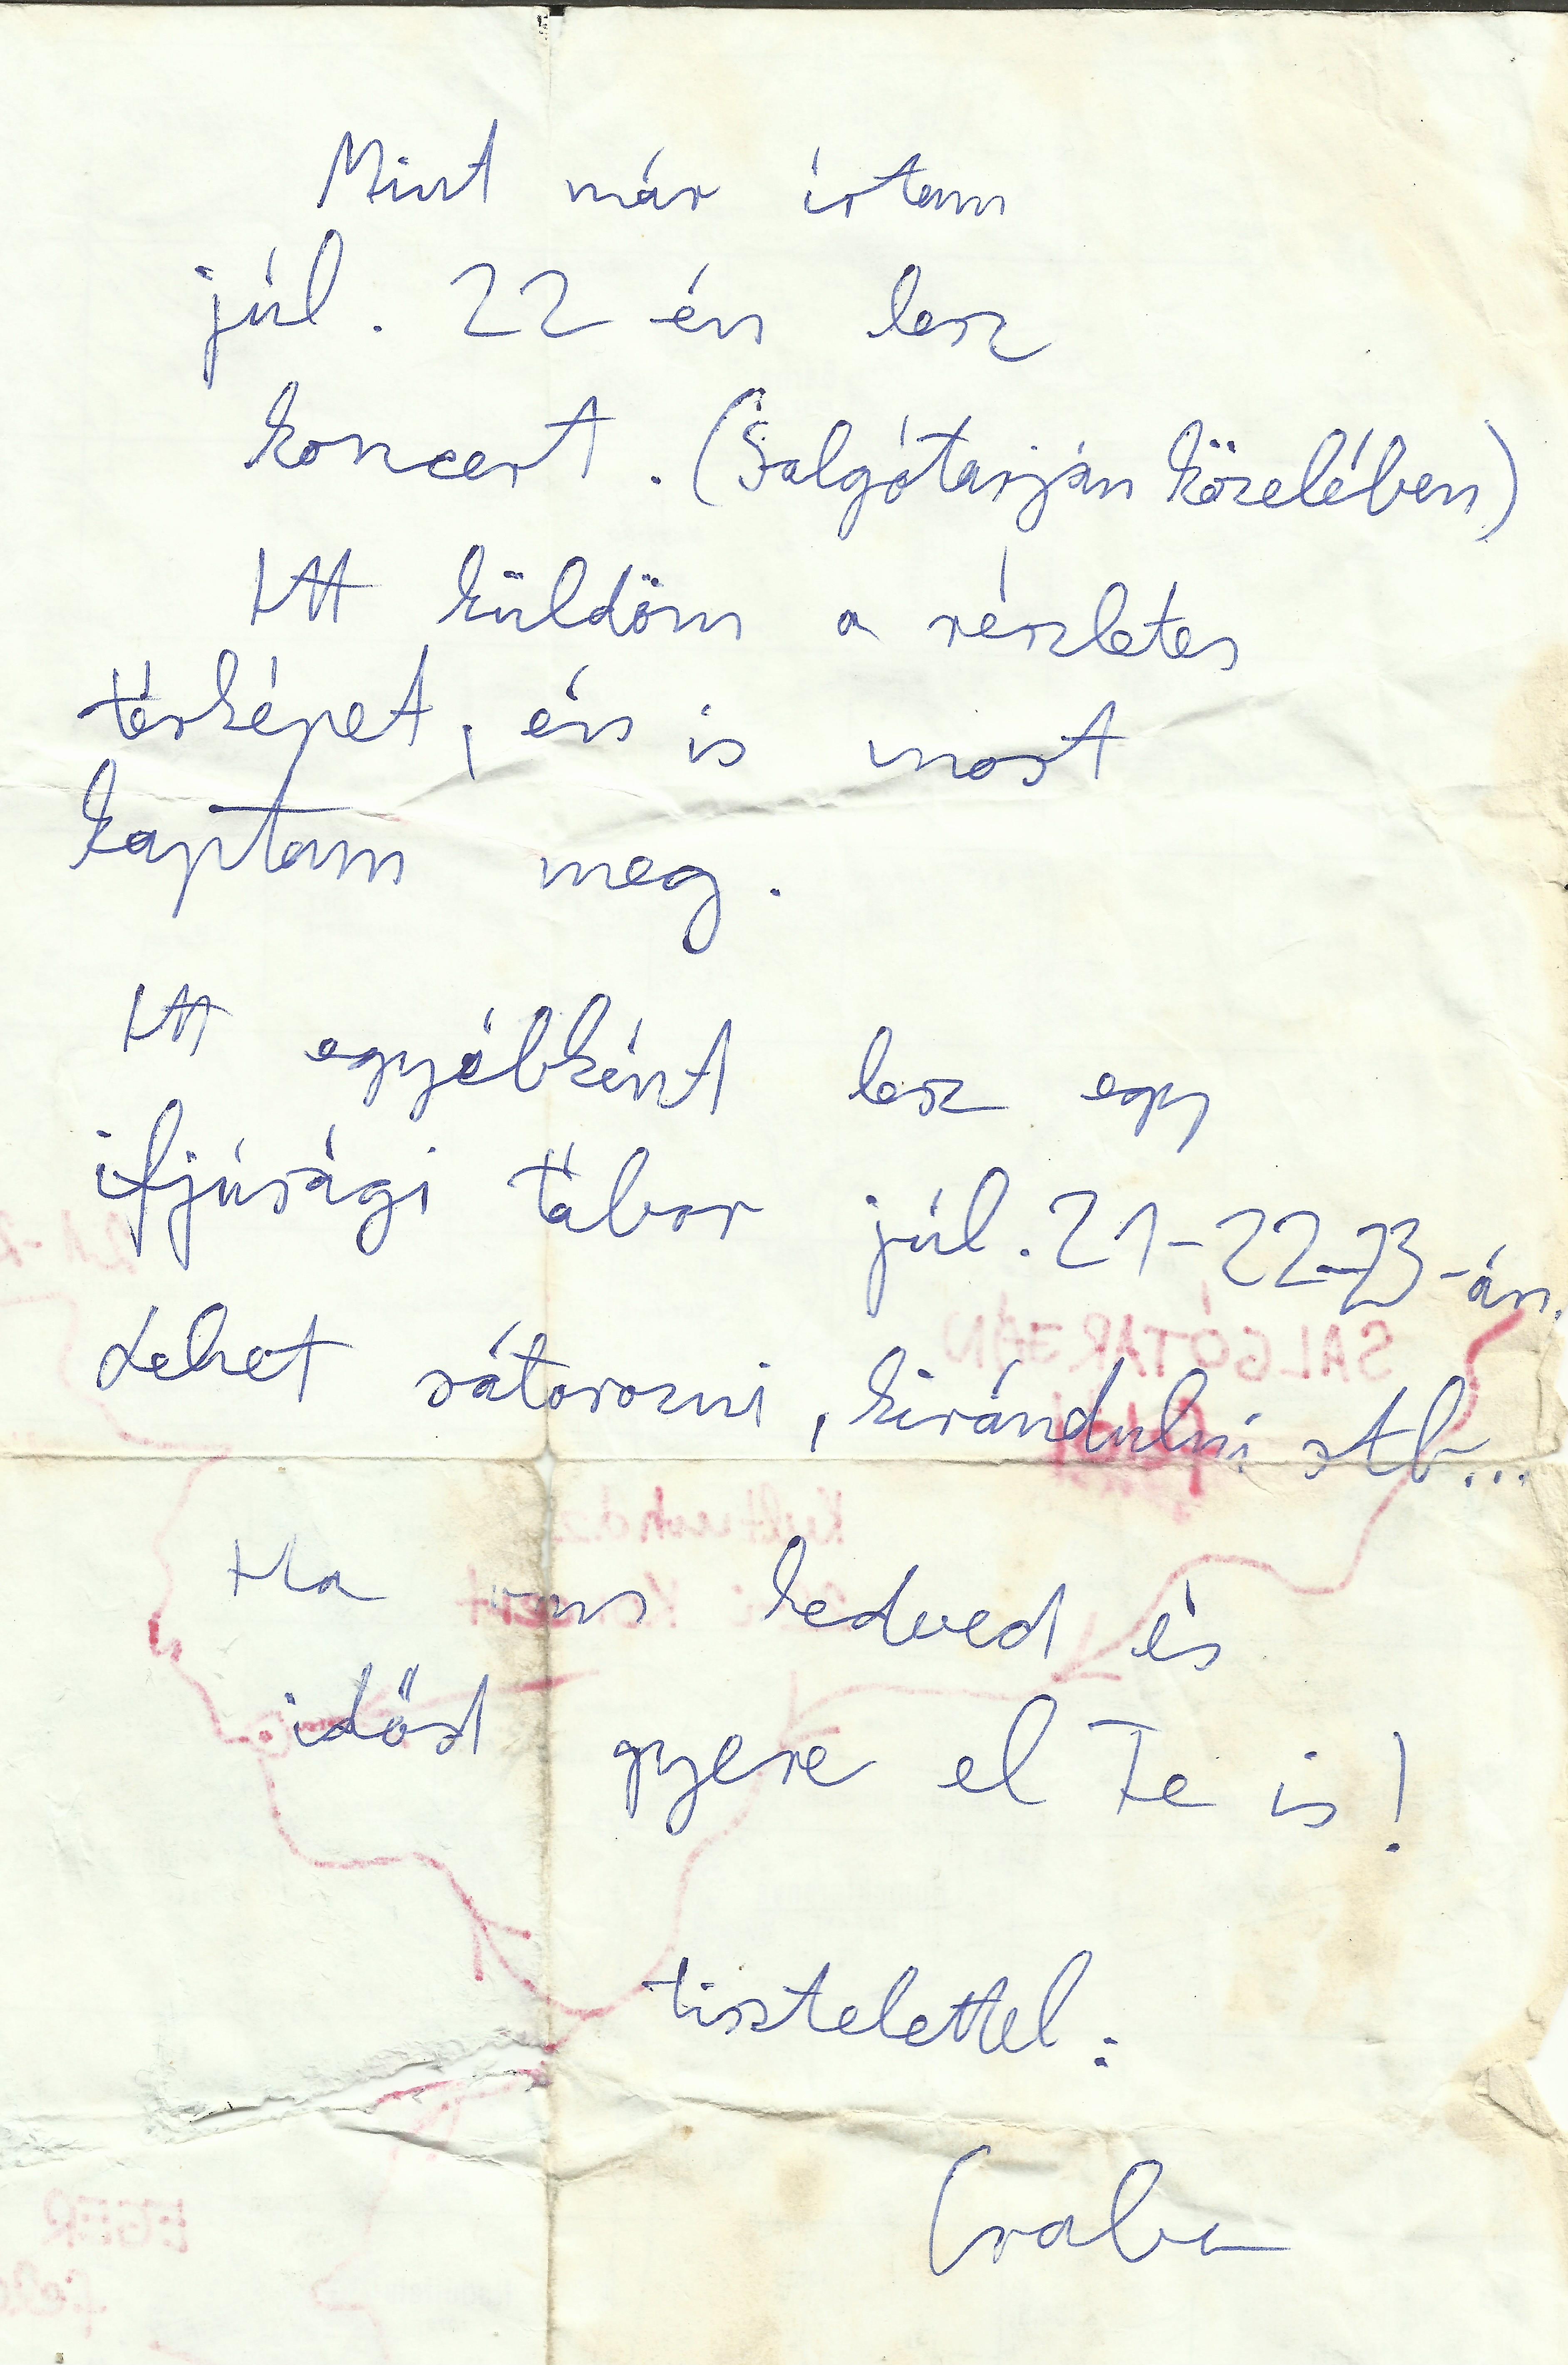 Mint már írtam
júl. 22-én lesz
koncert. (Salgótarján közelében)
Itt küldöm a részletes
térképet, én is most
kaptam meg.
Itt egyébként lesz egy
ifjúsági tábor júl. 21-22-23-án.
Lehet sátorozni, kirándulni stb...
SALGÓTARJÁN
felől
Ha van kedved és
időd gyere el Te is!
tisztelettel:
Csaba
EGER